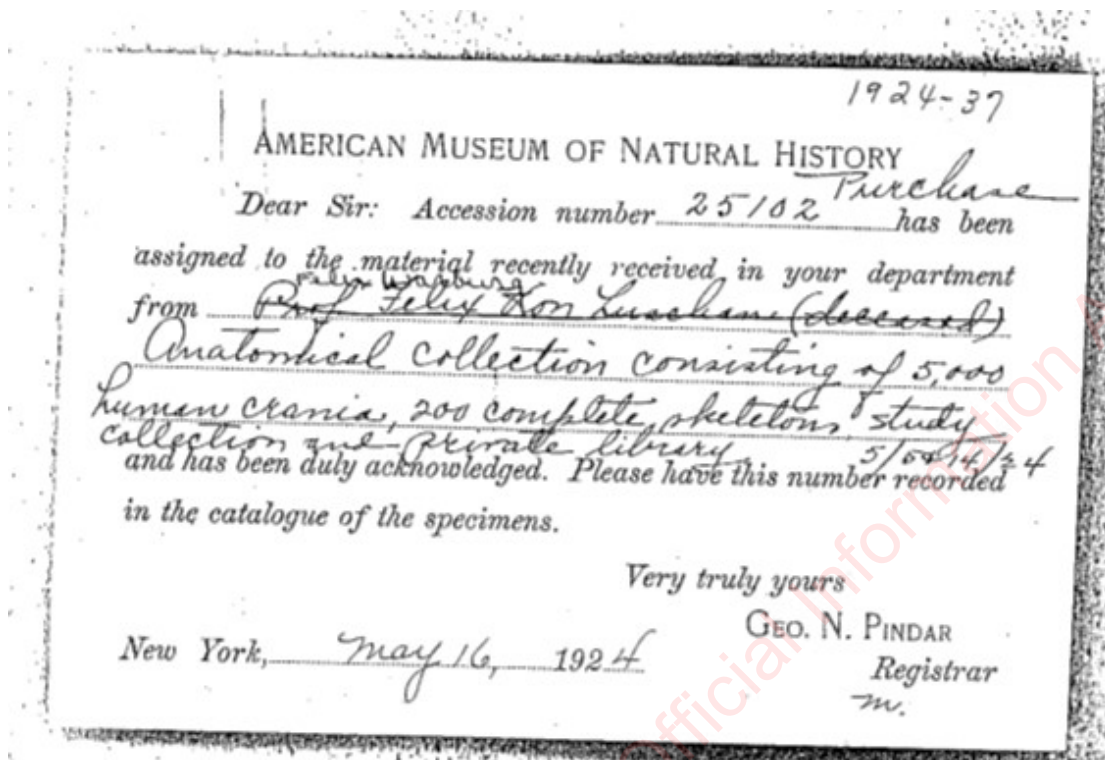 1924-37
AMERICAN MUSEUM OF NATURAL HISTORY
Purchase
Dear Sir: Accession number 25102 has been
assigned to the material recently received in your department
Felix Warburg
from Prof. Felix Von Luschane (deceased)
Anatomical collection consisting of 5,000
human crania, 200 complete skeletons, study
collection and private library.
and has been duly acknowledged. Please have this number recorded
in the catalogue of the specimens.
Very truly yours
GEO. N. PINDAR
New York, May 16, 1924
Registrar
m.
fficial Information A